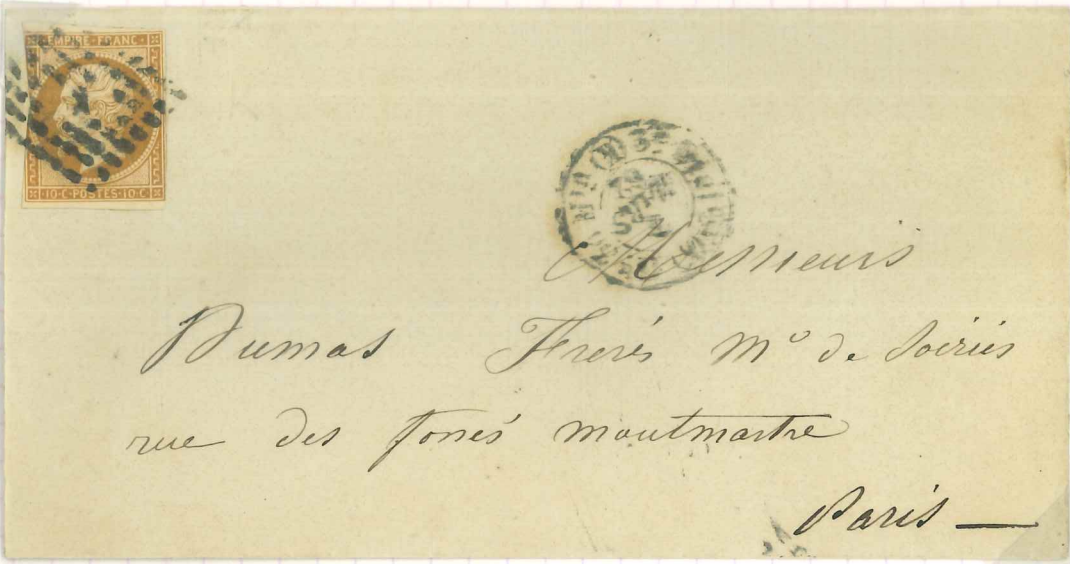 EMPIRE · FRANC ·
· 10 · C · POSTES · 10 · C ·
Messieurs
Dumas Frerés Md de Soiries
rue des fossés montmartre
Paris —